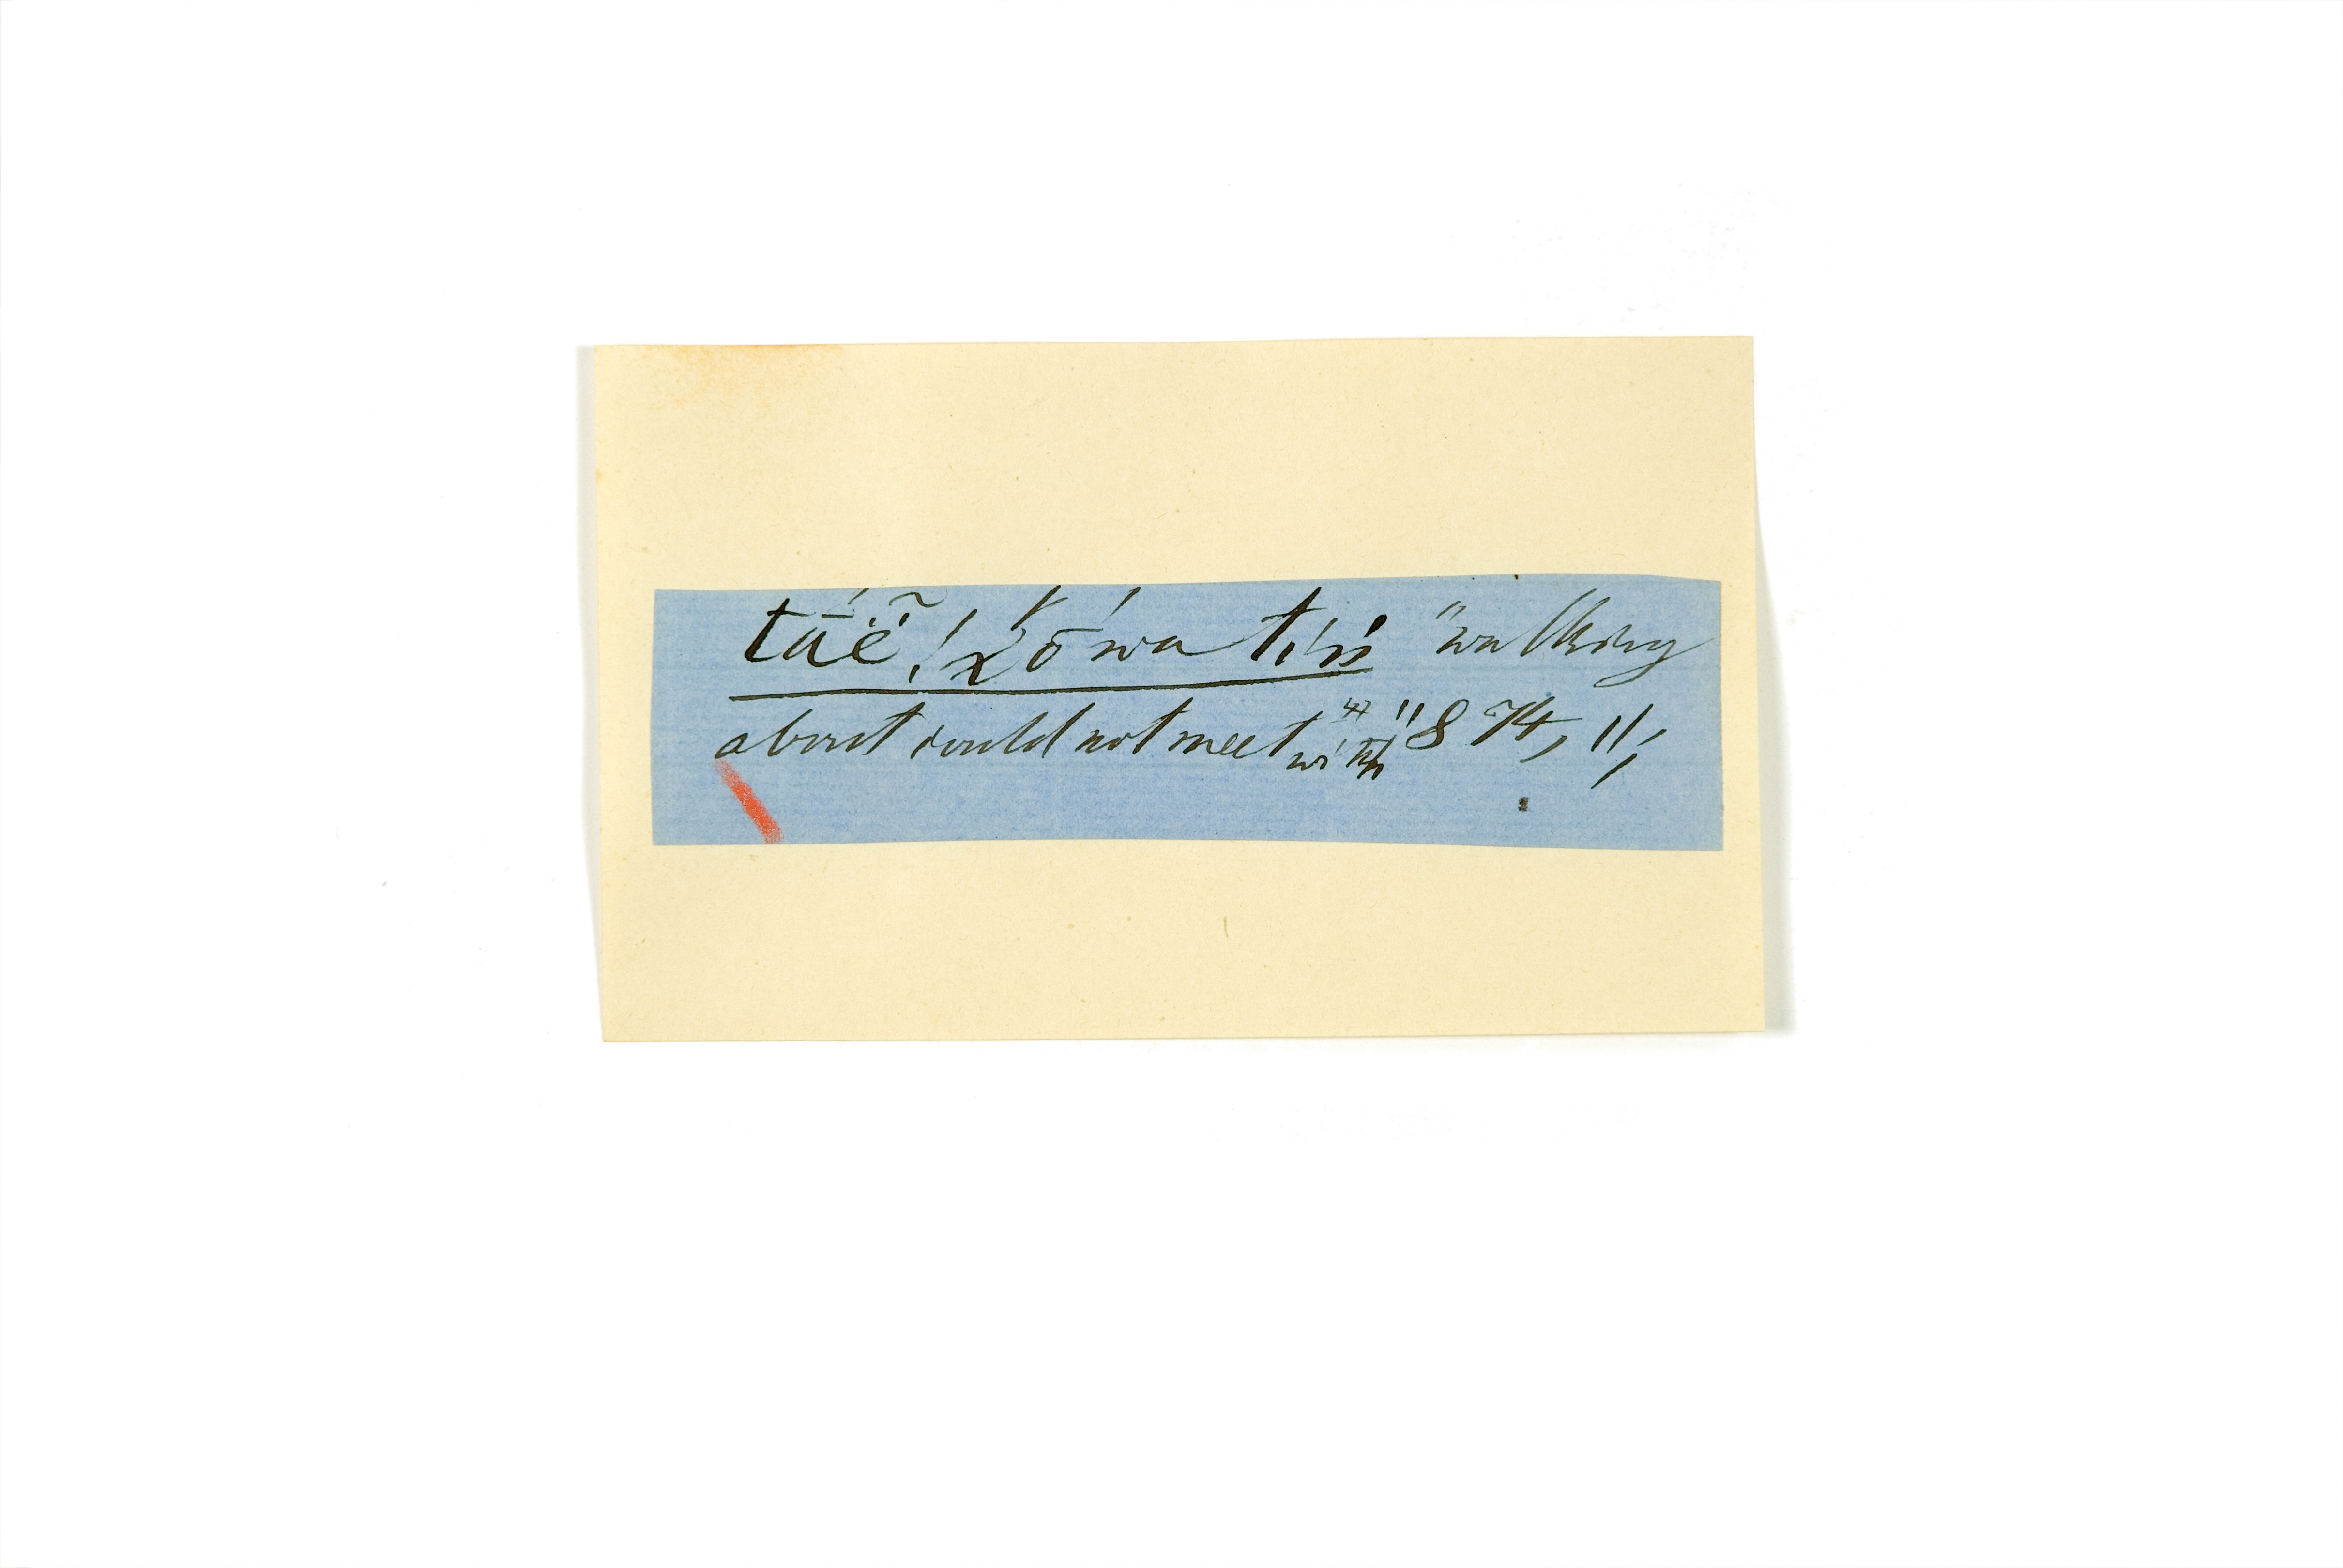 tā́ë̃ǃkō´wa t,ǃń "walking
about could not meet with" 874, 11,